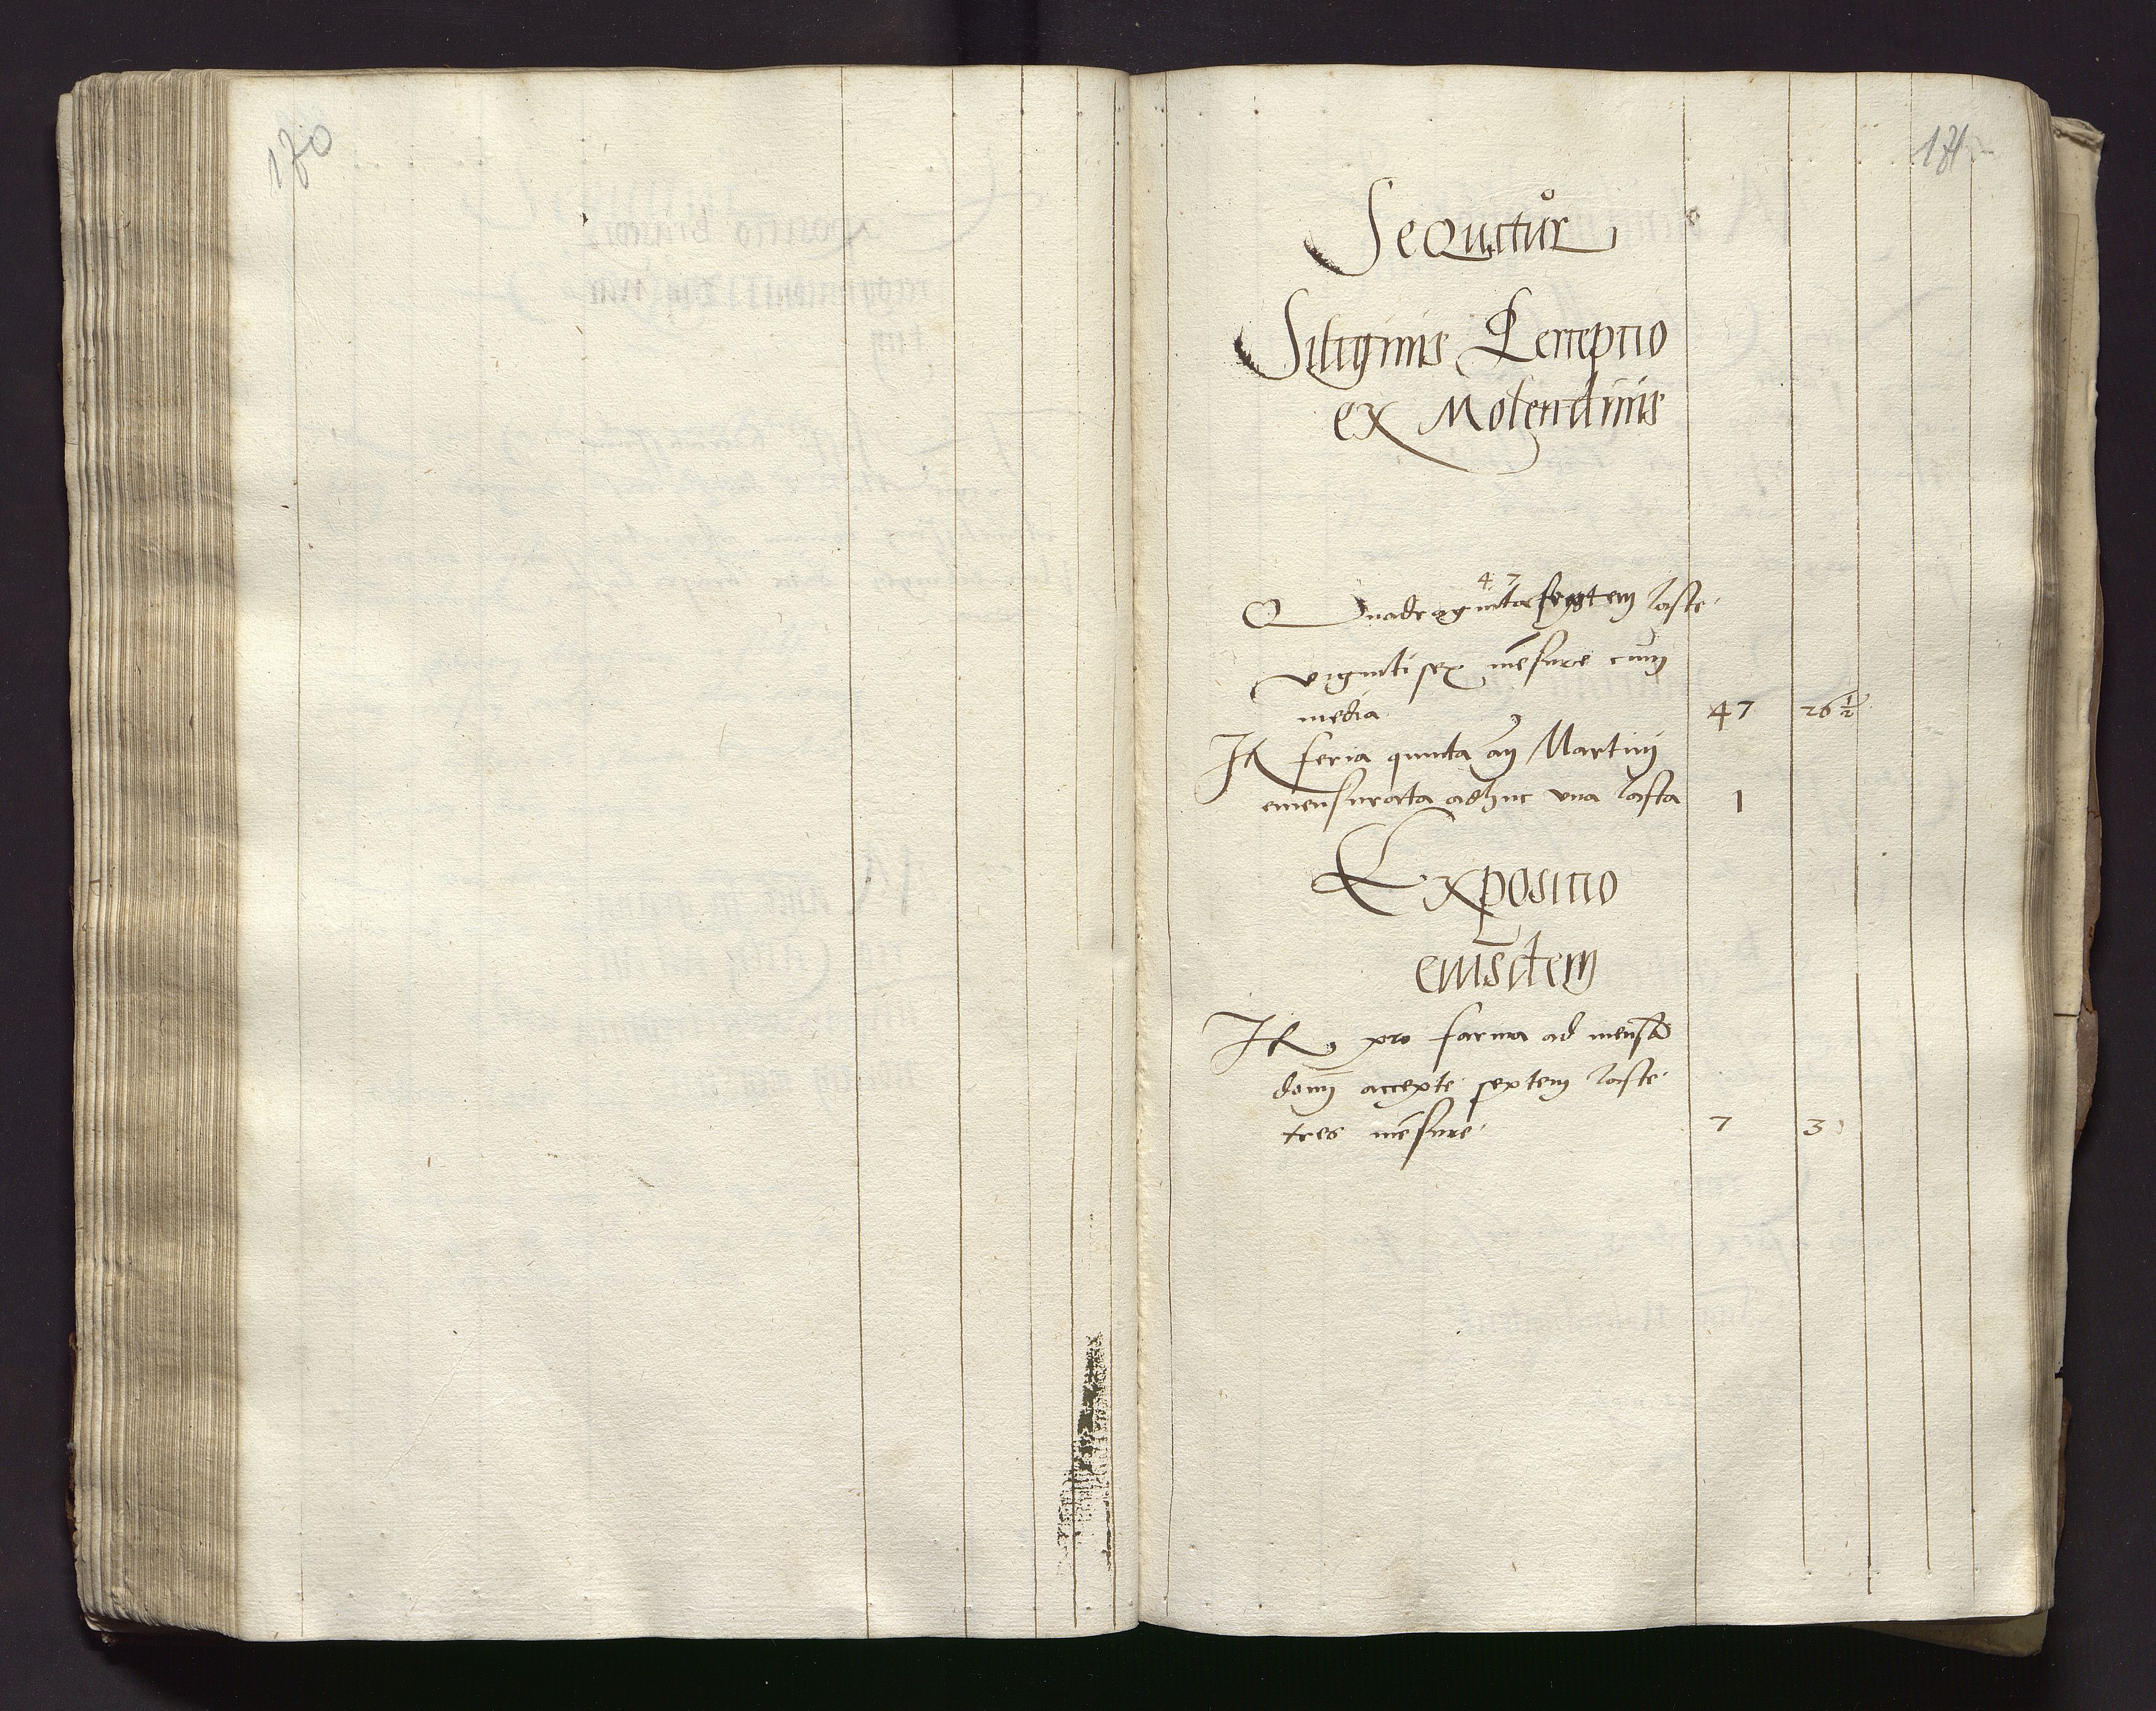 170
171
Sequitůr
Siliginis Perceptio
ex Molendinis
47
Quadraginta septem laste
viginti sex mēsure cum
media 47 26 1/2
It feria quinta añ Martini
emensurata adhuc vna lasta 1
Expositio
eiusdem
It pro farina ad mensā
domi accepte septem laste
tres mēsure 7 3